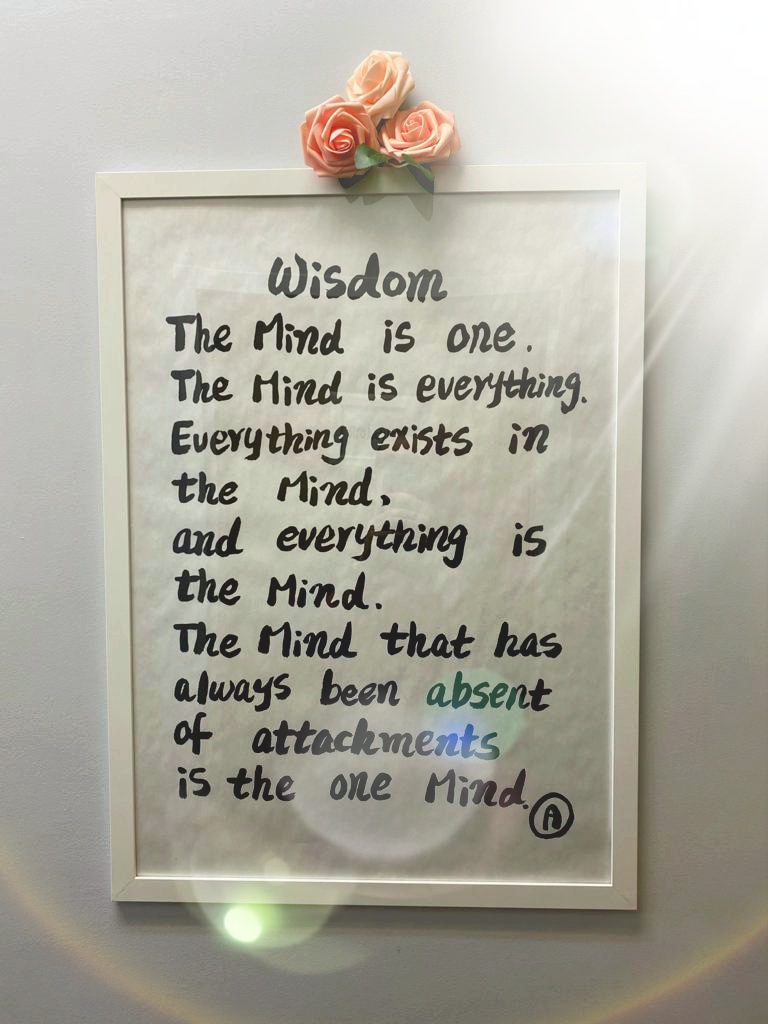 Wisdom
The Mind is one.
The Mind is everything.
Everything exists in
the Mind,
and everything is
the Mind.
The Mind that has
always been absent
of attachments
is the one Mind.
A